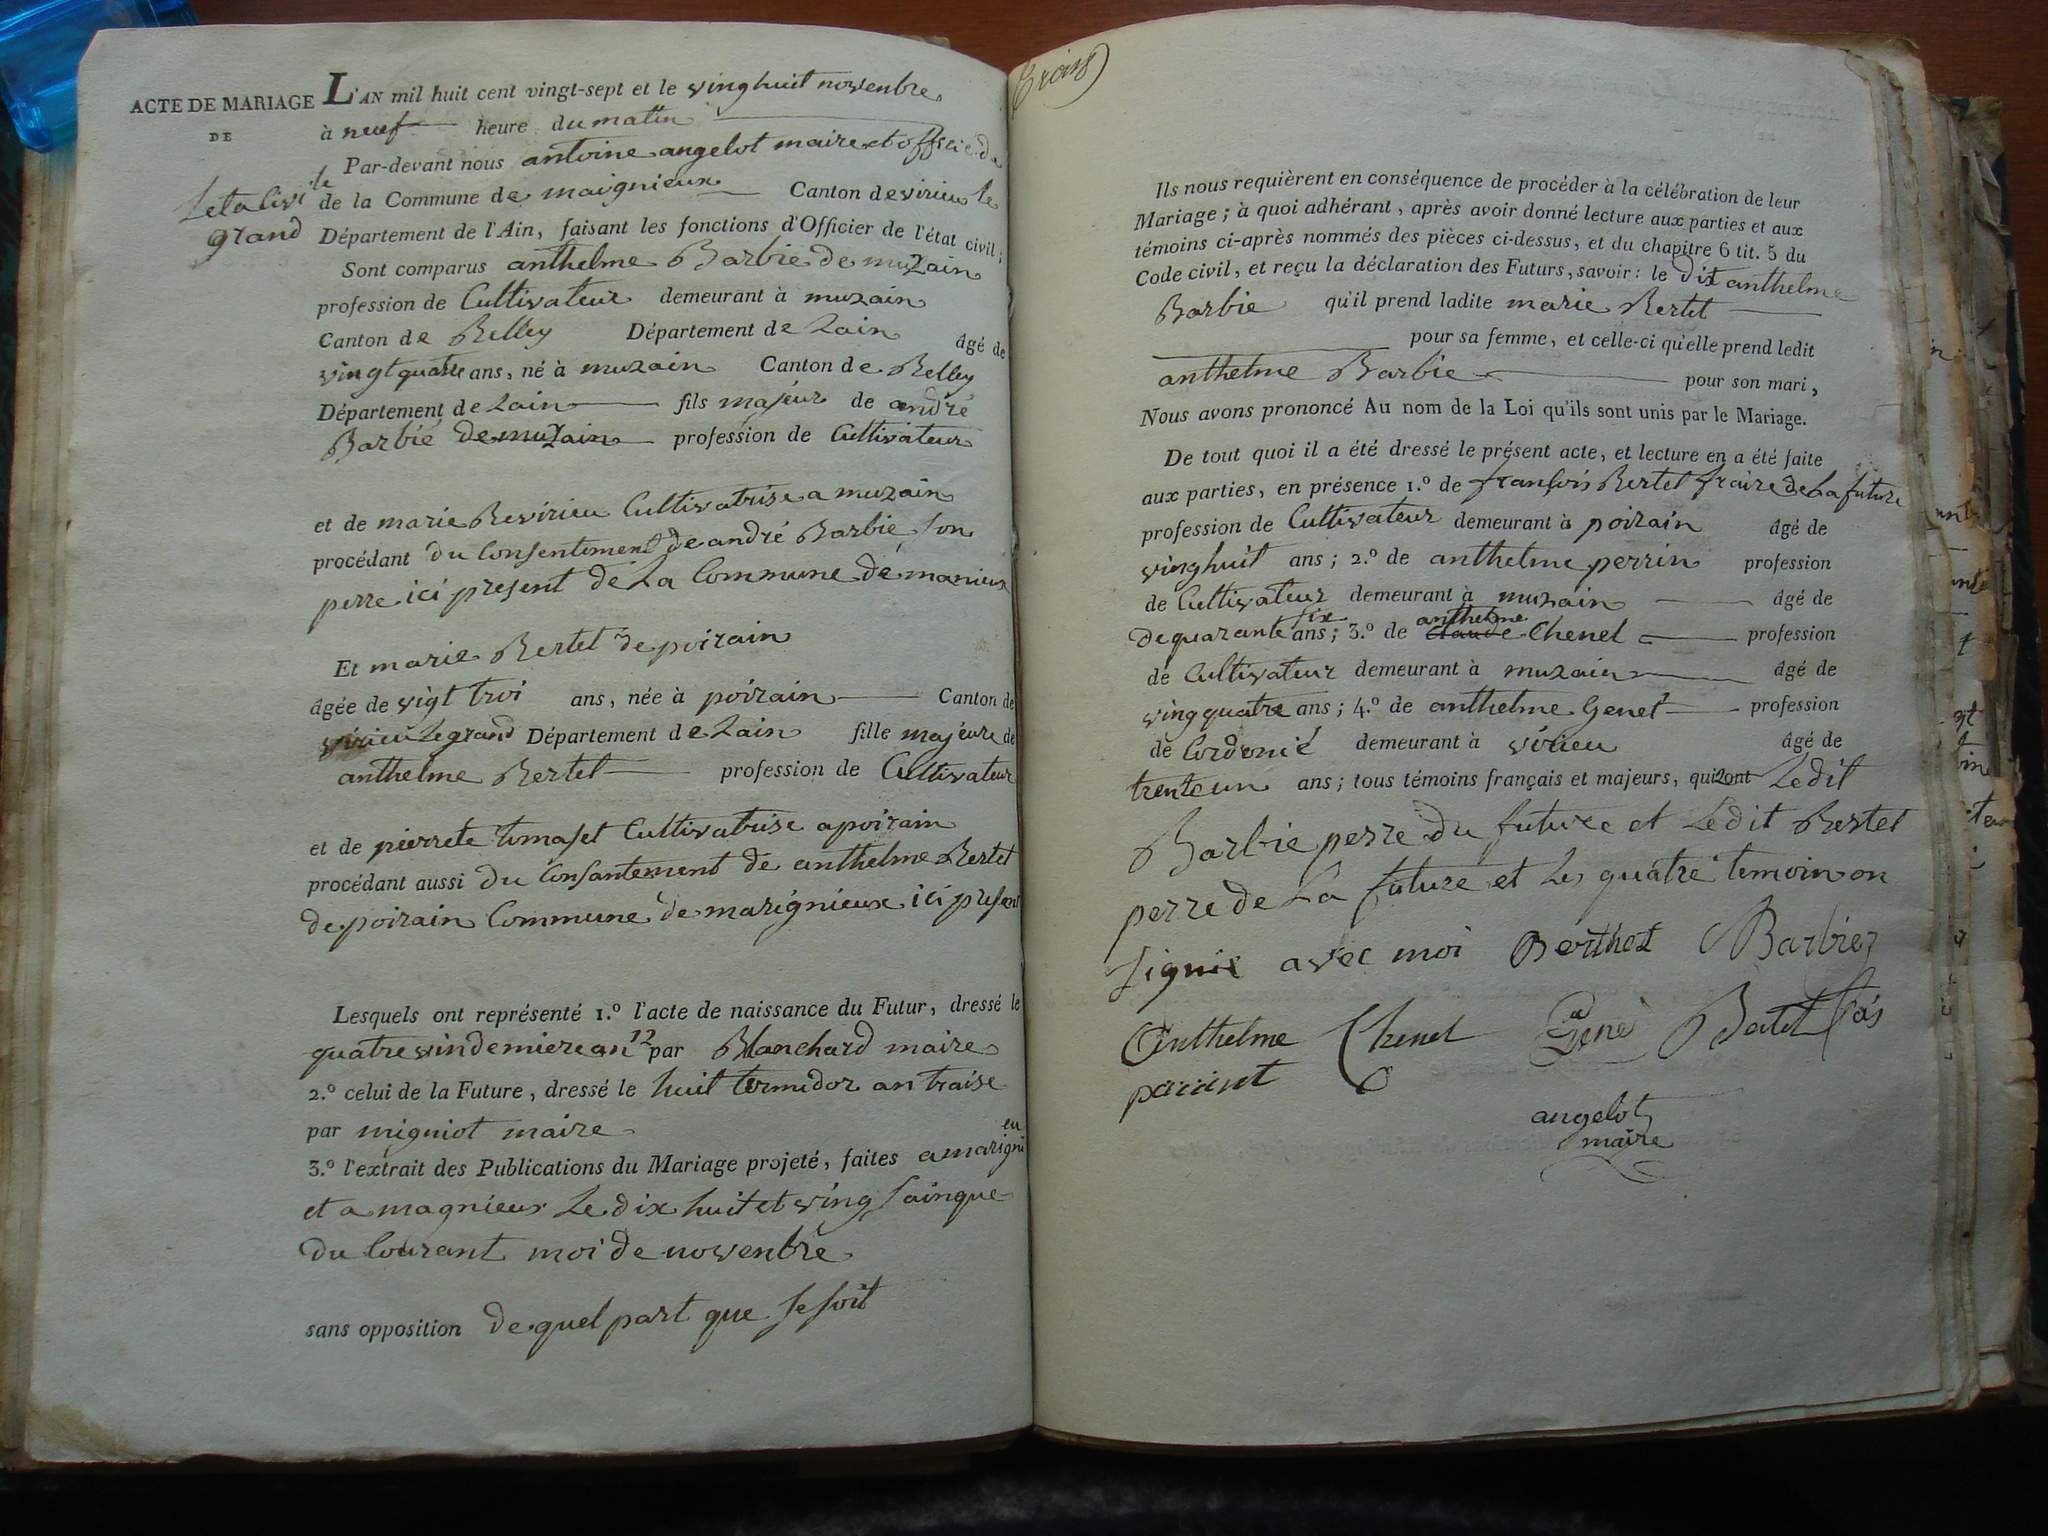 ACTE DE MARIAGE
DE
L'AN mil huit cent vingt-sept et le vinghuit novenbre
à neuf heure du matin
Par-devant nous antoine angelot maire et officie de
letalivi le
de la Commune de maignieux Canton de virieu le
grand
Département de l'Ain, faisant les fonctions d'Officier de l'état civil;
Sont comparus anthelme Barbie de muzain
profession de Cultivateur demeurant à muzain
Canton de Belley Département de Lain âgé de
vingtquatre ans, né à muzain Canton de Belley
Département de Lain fils majeur de andré
Barbié de muzain profession de Cultivateur
et de marie Revirieu Cultivatrise a muzain
procédant du Consentement de andré Barbie son
perre ici present de La Commune de manieux
Et marie Bertet de poirain
âgée de vigt troi ans, née à poirain Canton de
virieu Legrand Département de Lain fille majeure de
anthelme Bertet profession de Cultivateur
et de pierrete tomaset Cultivatrise a poirain
procédant aussi du Consantement de anthelme Bertet
de poirain Commune de marignieux ici present
Lesquels ont représenté 1.º l'acte de naissance du Futur, dressé le
quatre vindemiere an 12 par Blanchard maire
2.º celui de la Future, dressé le huit termidor an traise
par migniot maire
3.º l'extrait des Publications du Mariage projeté, faites a marigni eu
et a magnieux Le dix huit et ving sainque
du Courant moi de novenbre
sans opposition de quel part que se soit
trois)
Ils nous requièrent en conséquence de procéder à la célébration de leur
Mariage; à quoi adhérant, après avoir donné lecture aux parties et aux
témoins ci-après nommés des pièces ci-dessus, et du chapitre 6 tit. 5 du
Code civil, et reçu la déclaration des Futurs, savoir: le dit anthelme
Barbie qu'il prend ladite marie Bertet
pour sa femme, et celle-ci qu'elle prend ledit
anthelme Barbie pour son mari,
Nous avons prononcé Au nom de la Loi qu'ils sont unis par le Mariage.
De tout quoi il a été dressé le présent acte, et lecture en a été faite
aux parties, en présence 1.º de françois Bertet fraire de La future
profession de Cultivateur demeurant à poirain âgé de
vinghuit ans; 2.º de anthelme perrin profession
de Cultivateur demeurant à muzain âgé de
de quarante six ans; 3.º de anthelme Claude Chenel profession
de Cultivateur demeurant à muzain âgé de
vingquatre ans; 4.º de anthelme Genet profession
de Cordonié demeurant à virieu âgé de
trente un ans; tous témoins français et majeurs, qui ont Ledit
Barbie perre du future et Ledit Bertet
perre de La future et Les quatre temoin on
signie avec moi Berthet Barbier
Anthelme Chenel Gene Batet
angelot
maire